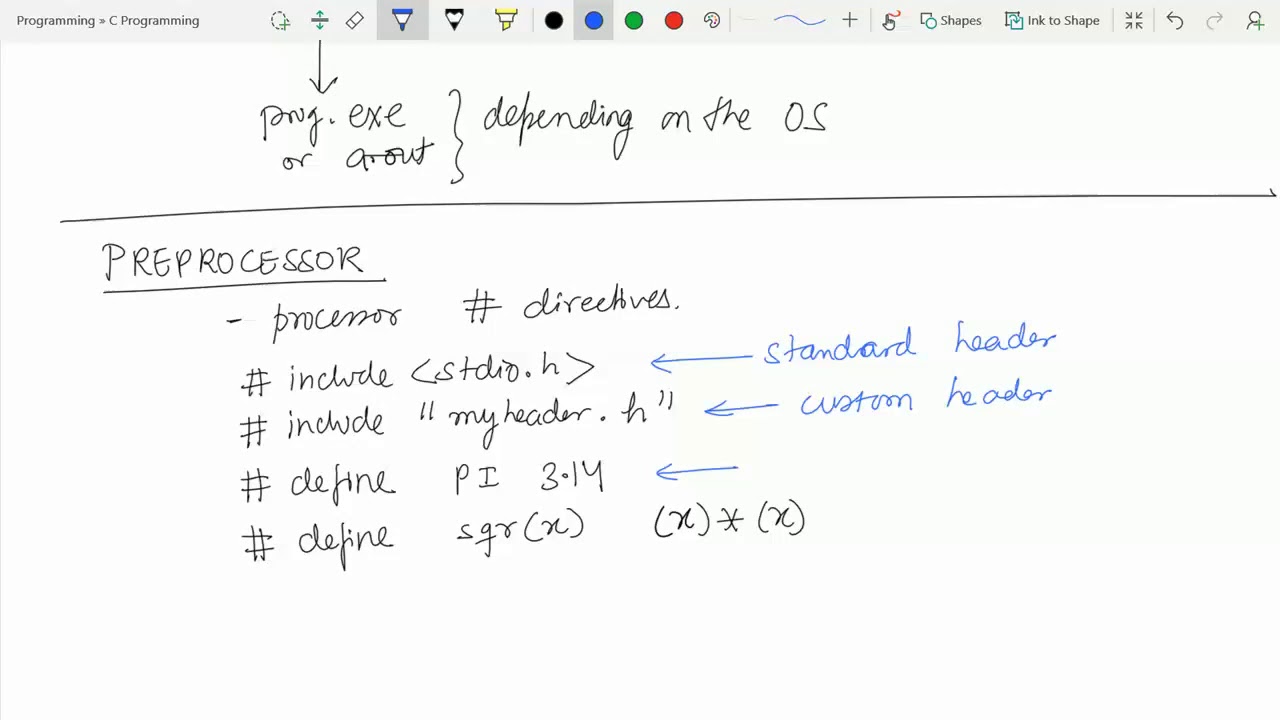 Programming » C Programming
Shapes
Ink to Shape
prog. exe
or a.out
} depending on the OS
PREPROCESSOR
- processor # directives.
# include <stdio.h> ← standard header
# include "myheader.h" ← custom header
# define PI 3.14 ←
# define sqr(x) (x)*(x)